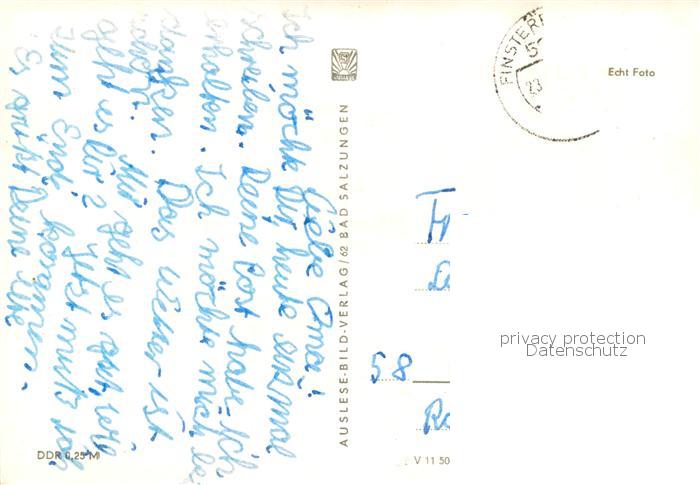 Liebe Oma!
Ich möchte Dir heute einmal
schreiben. Deine Post habe ich
erhalten. Ich möchte mich be-
danken. Das Wetter ist
Mir geht es gut, wie
geht es Dir? Jetzt muß ich
zum Ende kommen.
Es grüßt Deine
AUSLESE-BILD-VERLAG/62 BAD SALZUNGEN
DDR 0,25 M
V 11 50
Echt Foto
FINSTER
58
privacy protection
Datenschutz